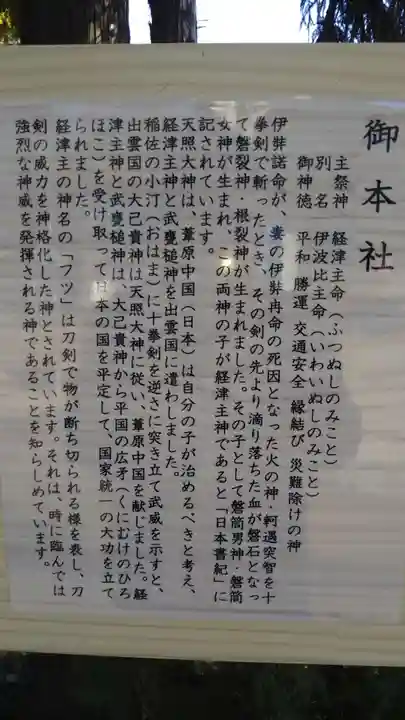 御本社
主祭神 経津主命(ふつぬしのみこと)
別名 伊波比主命(いわいぬしのみこと)
御神徳 平和 勝運 交通安全 縁結び 災難除けの神
伊弉諾命が、妻の伊弉冉命の死因となった火の神・軻遇突智を十
拳剣で斬ったとき、その剣の先より滴り落ちた血が磐石となっ
て磐裂神・根裂神が生まれました。その子として磐筒男神・磐筒
女神が生まれ、この両神の子が経津主神であると「日本書紀」に
記されています。
天照大神は、葦原中国(日本)は自分の子が治めるべきと考え、
経津主神と武甕槌神を出雲国に遣わしました。
稲佐の小汀(おはま)に十拳剣を逆さに突き立て武威を示すと、
出雲国の大己貴神は天照大神に従い、葦原中国を献じました。経
津主神と武甕槌神は、大己貴神から平国の広矛(くにむけのひろ
ほこ)を受け取って日本の国を平定して、国家統一の大功を立て
られました。
経津主の神名の「フツ」は刀剣で物が断ち切られる様を表し、刀
剣の威力を神格化した神とされています。それは、時に臨んでは
強烈な神威を発揮される神であることを知らしめています。